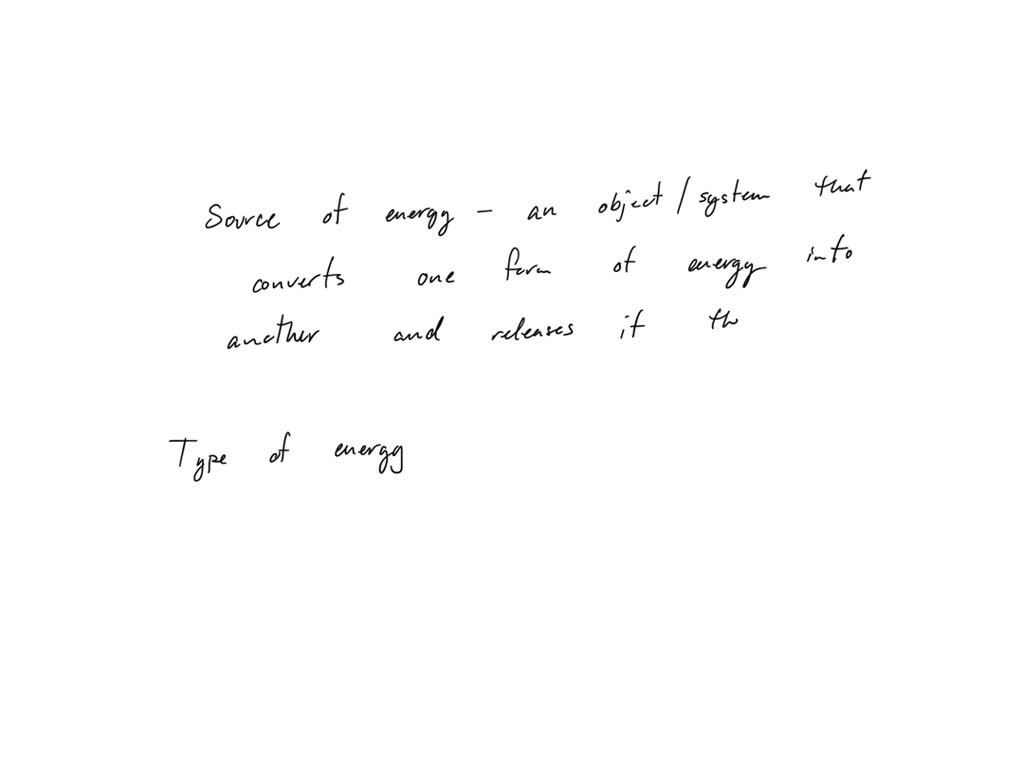 Source of energy - an object / system that
converts one form of energy into
another and releases it th
Type of energy